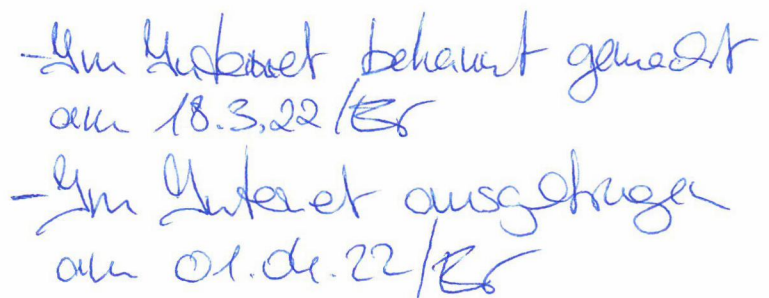 -Im Internet bekannt gemacht
am 18.3.22/Er
-Im Internet ausgetragen
am 01.04.22/Er